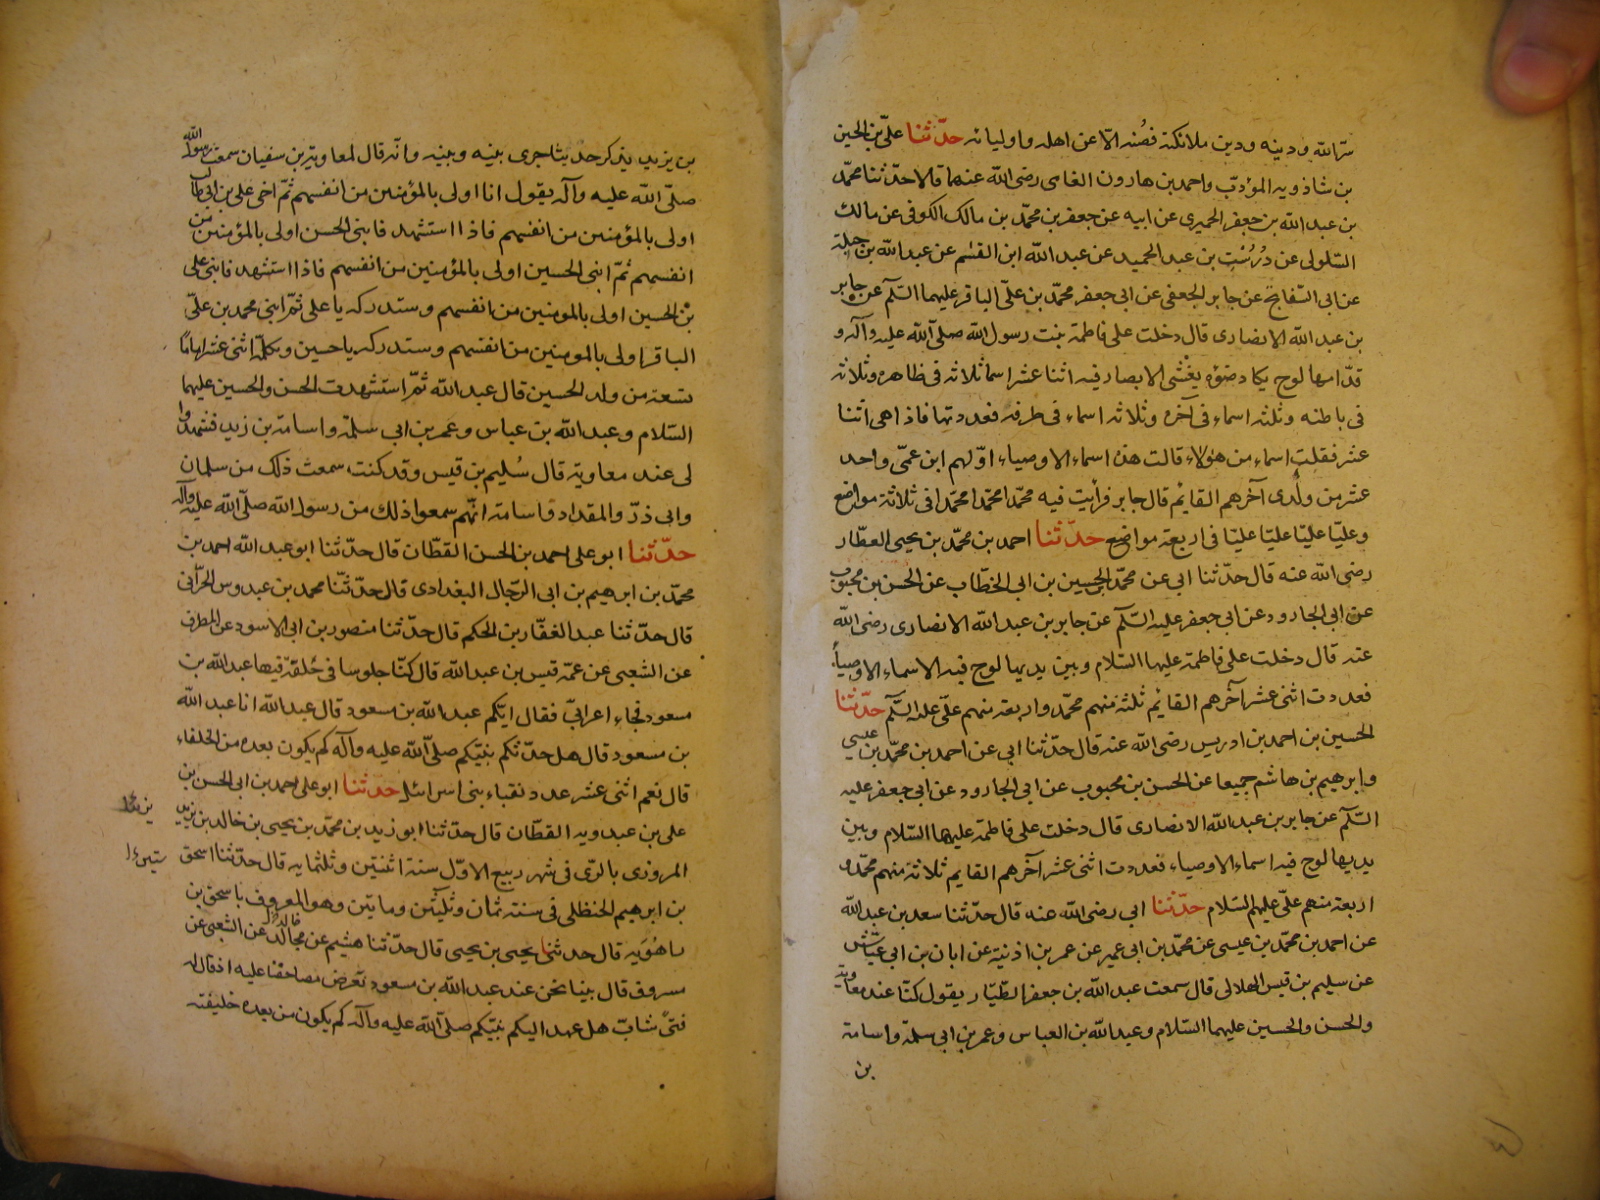 سرّ الله ودينه ودين ملائكته فصُنه الّا عن اهله واوليائه حدّثنا علىّ بن الحسين
بن شاذويه المؤدّب واحمد بن هارون الفامى رضى الله عنهما قالا حدّثنا محمّد
بن عبد الله بن جعفر الحميرى عن ابيه عن جعفر بن محمّد بن مالك الكوفى عن مالك
السّلولى عن دُرُسْت بن عبد الحميد عن عبد الله ابن القسم عن عبد الله بن جبلة
عن ابى السّفاتج عن جابر الجعفى عن ابى جعفر محمّد بن علىّ الباقر عليهما السّلم عن جابر
بن عبد الله الانصارى قال دخلت على فاطمة بنت رسول الله صلّى الله عليه وآله و
قدّامها لوح يكاد ضوؤه يغْشى الابصار فيه اثنا عشر اسما ثلاثة فى ظاهره وثلاثة
فى باطنه وثلثة اسماء فى آخره وثلاثة اسماء فى طرفه فعددتها فاذا هى اثنا
عشر فقلت اسماء من هؤلاء قالت هذه اسماء الاوصياء اوّلهم ابن عمّى واحد
عشر من ولْدى آخرهم القايم قال جابر فرأيت فيه محمّدا محمّدا محمّدا فى ثلاثة مواضع
وعليّا عليّا عليّا عليّا فى اربعة مواضع حدّثنا احمد بن محمّد بن يحيى العطّار
رضى الله عنه قال حدّثنا ابى عن محمّد الحسين بن ابى الخطّاب عن الحسن بن محبوب
عن ابى الجارود عن ابى جعفر عليه السّلم عن جابر بن عبد الله الانصارى رضى الله
عنه قال دخلت على فاطمة عليها السّلام وبين يديها لوح فيه الاسماء الاوصياء
فعددت اثنى عشر آخرهم القايم ثلثة منهم محمّد واربعة منهم علىّ عليه السّلم حدّثنا
الحسين بن احمد بن ادريس رضى الله عنه قال حدّثنا ابى عن احمد بن محمّد بن عيسى
وابرهيم بن هاشم جميعا عن الحسن بن محبوب عن ابى الجارود عن ابى جعفر عليه
السّلم عن جابر بن عبد الله الانصارى قال دخلت على فاطمة عليها السّلام وبين
يديها لوح فيه اسماء الاوصياء فعددت اثنى عشر آخرهم القايم ثلاثة منهم محمّد و
اربعة منهم علىّ عليهم السّلام حدّثنا ابى رضى الله عنه قال حدّثنا سعد بن عبد الله
عن احمد بن محمّد بن عيسى عن محمّد بن ابى عمير عن عمر بن اذنية عن ابان بن ابى عيّاش
عن سليم بن قيس الهلالى قال سمعت عبد الله بن جعفر الطّيّار يقول كنّا عند معاوية
والحسن والحسين عليهما السّلام وعبد الله بن العباس وعمر بن ابى سلمة واسامة
بن
بن يزيد يذكر حديثا جرى بينه وبينه وانّه قال لمعاوية بن سفيان سمعت رسول الله
صلّى الله عليه وآله يقول انا اولى بالمؤمنين من انفسهم ثمّ اخى على بن ابى طالب
اولى بالمؤمنين من انفسهم فاذا استشهد فابنى الحسن اولى بالمؤمنين من
انفسهم ثمّ ابنى الحسين اولى بالمؤمنين من انفسهم فاذا استشهد فابنى على
بن الحسين اولى بالمومنين من انفسهم وستدركه يا على ثمّ ابنى محمد بن علىّ
الباقر اولى بالمومنين من انفسهم وستدركه يا حسين وتكملة اثنى عشر اماما
تسعة من ولد الحسين قال عبد الله ثمّ استشهدت الحسن والحسين عليهما
السّلام وعبد الله بن عباس وعمر بن ابى سلمة واسامة بن زيد فشهدوا
لى عند معاوية قال سُليم بن قيس وقد كنت سمعت ذلك من سلمان
وابى ذرّ والمقداد واسامة انّهم سمعوا ذلك من رسول الله صلّى الله عليه وآله
حدّثنا ابو على احمد بن الحسن القطّان قال حدّثنا ابو عبد الله احمد بن
محمّد بن ابرهيم بن ابى الرّجال البغدادى قال حدّثنا محمد بن عبدوس الحرّانى
قال حدّثنا عبد الغفّار بن الحكم قال حدّثنا منصور بن ابى الاسود عن المطرف
عن الشعبى عن عمّه قيس بن عبد الله قال كنّا جلوسا فى حَلقة فيها عبد الله بن
مسعود فجاء اعرابىّ فقال ايّكم عبد الله بن مسعود قال عبد الله انا عبد الله
بن مسعود قال هل حدّثكم نبيّكم صلّى الله عليه وآله كم يكون بعده من الخلفاء
قال نعم اثنى عشر عدد نقباء بنى اسرائيل حدّثنا ابو على احمد بن ابى الحسن بن
على بن عبدويه القطّان قال حدّثنا ابو زيد بن محمّد بن يحيى بن خالد بن يزيد
المروزى بالرّى فى شهر ربيع الاوّل سنة اثنتين وثلثمايه قال حدّثنا اسحق
بن ابرهيم الحنظلى فى سنة ثمان وثلثين ومايتين وهو المعروف باسحق بن
راهُوَيه قال حدثنا يحيى بن يحيى قال حدّثنا هشيم عن مجالد عن الشعبى عن
مسروق قال بينا نحن عند عبد الله بن مسعود نعرض مصاحفنا عليه اذ قال له
فتىً شابّ هل عهد اليكم نبيّكم صلّى الله عليه وآله كم يكون من بعده خليفة